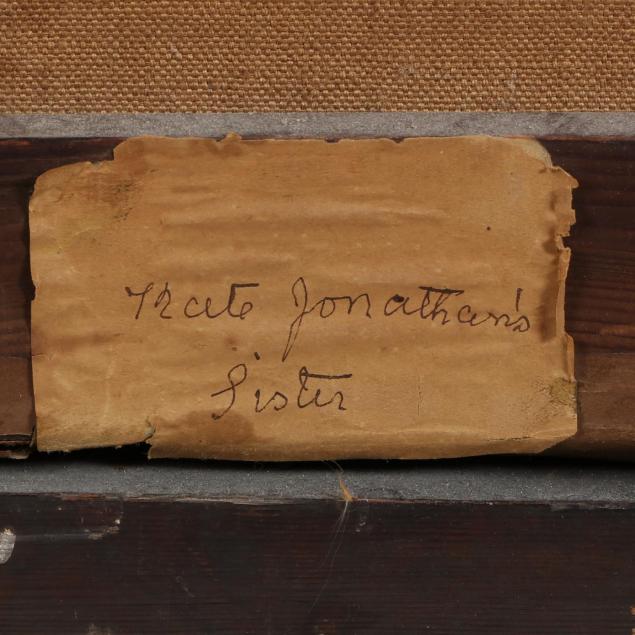 Kate Jonathan's
Sister